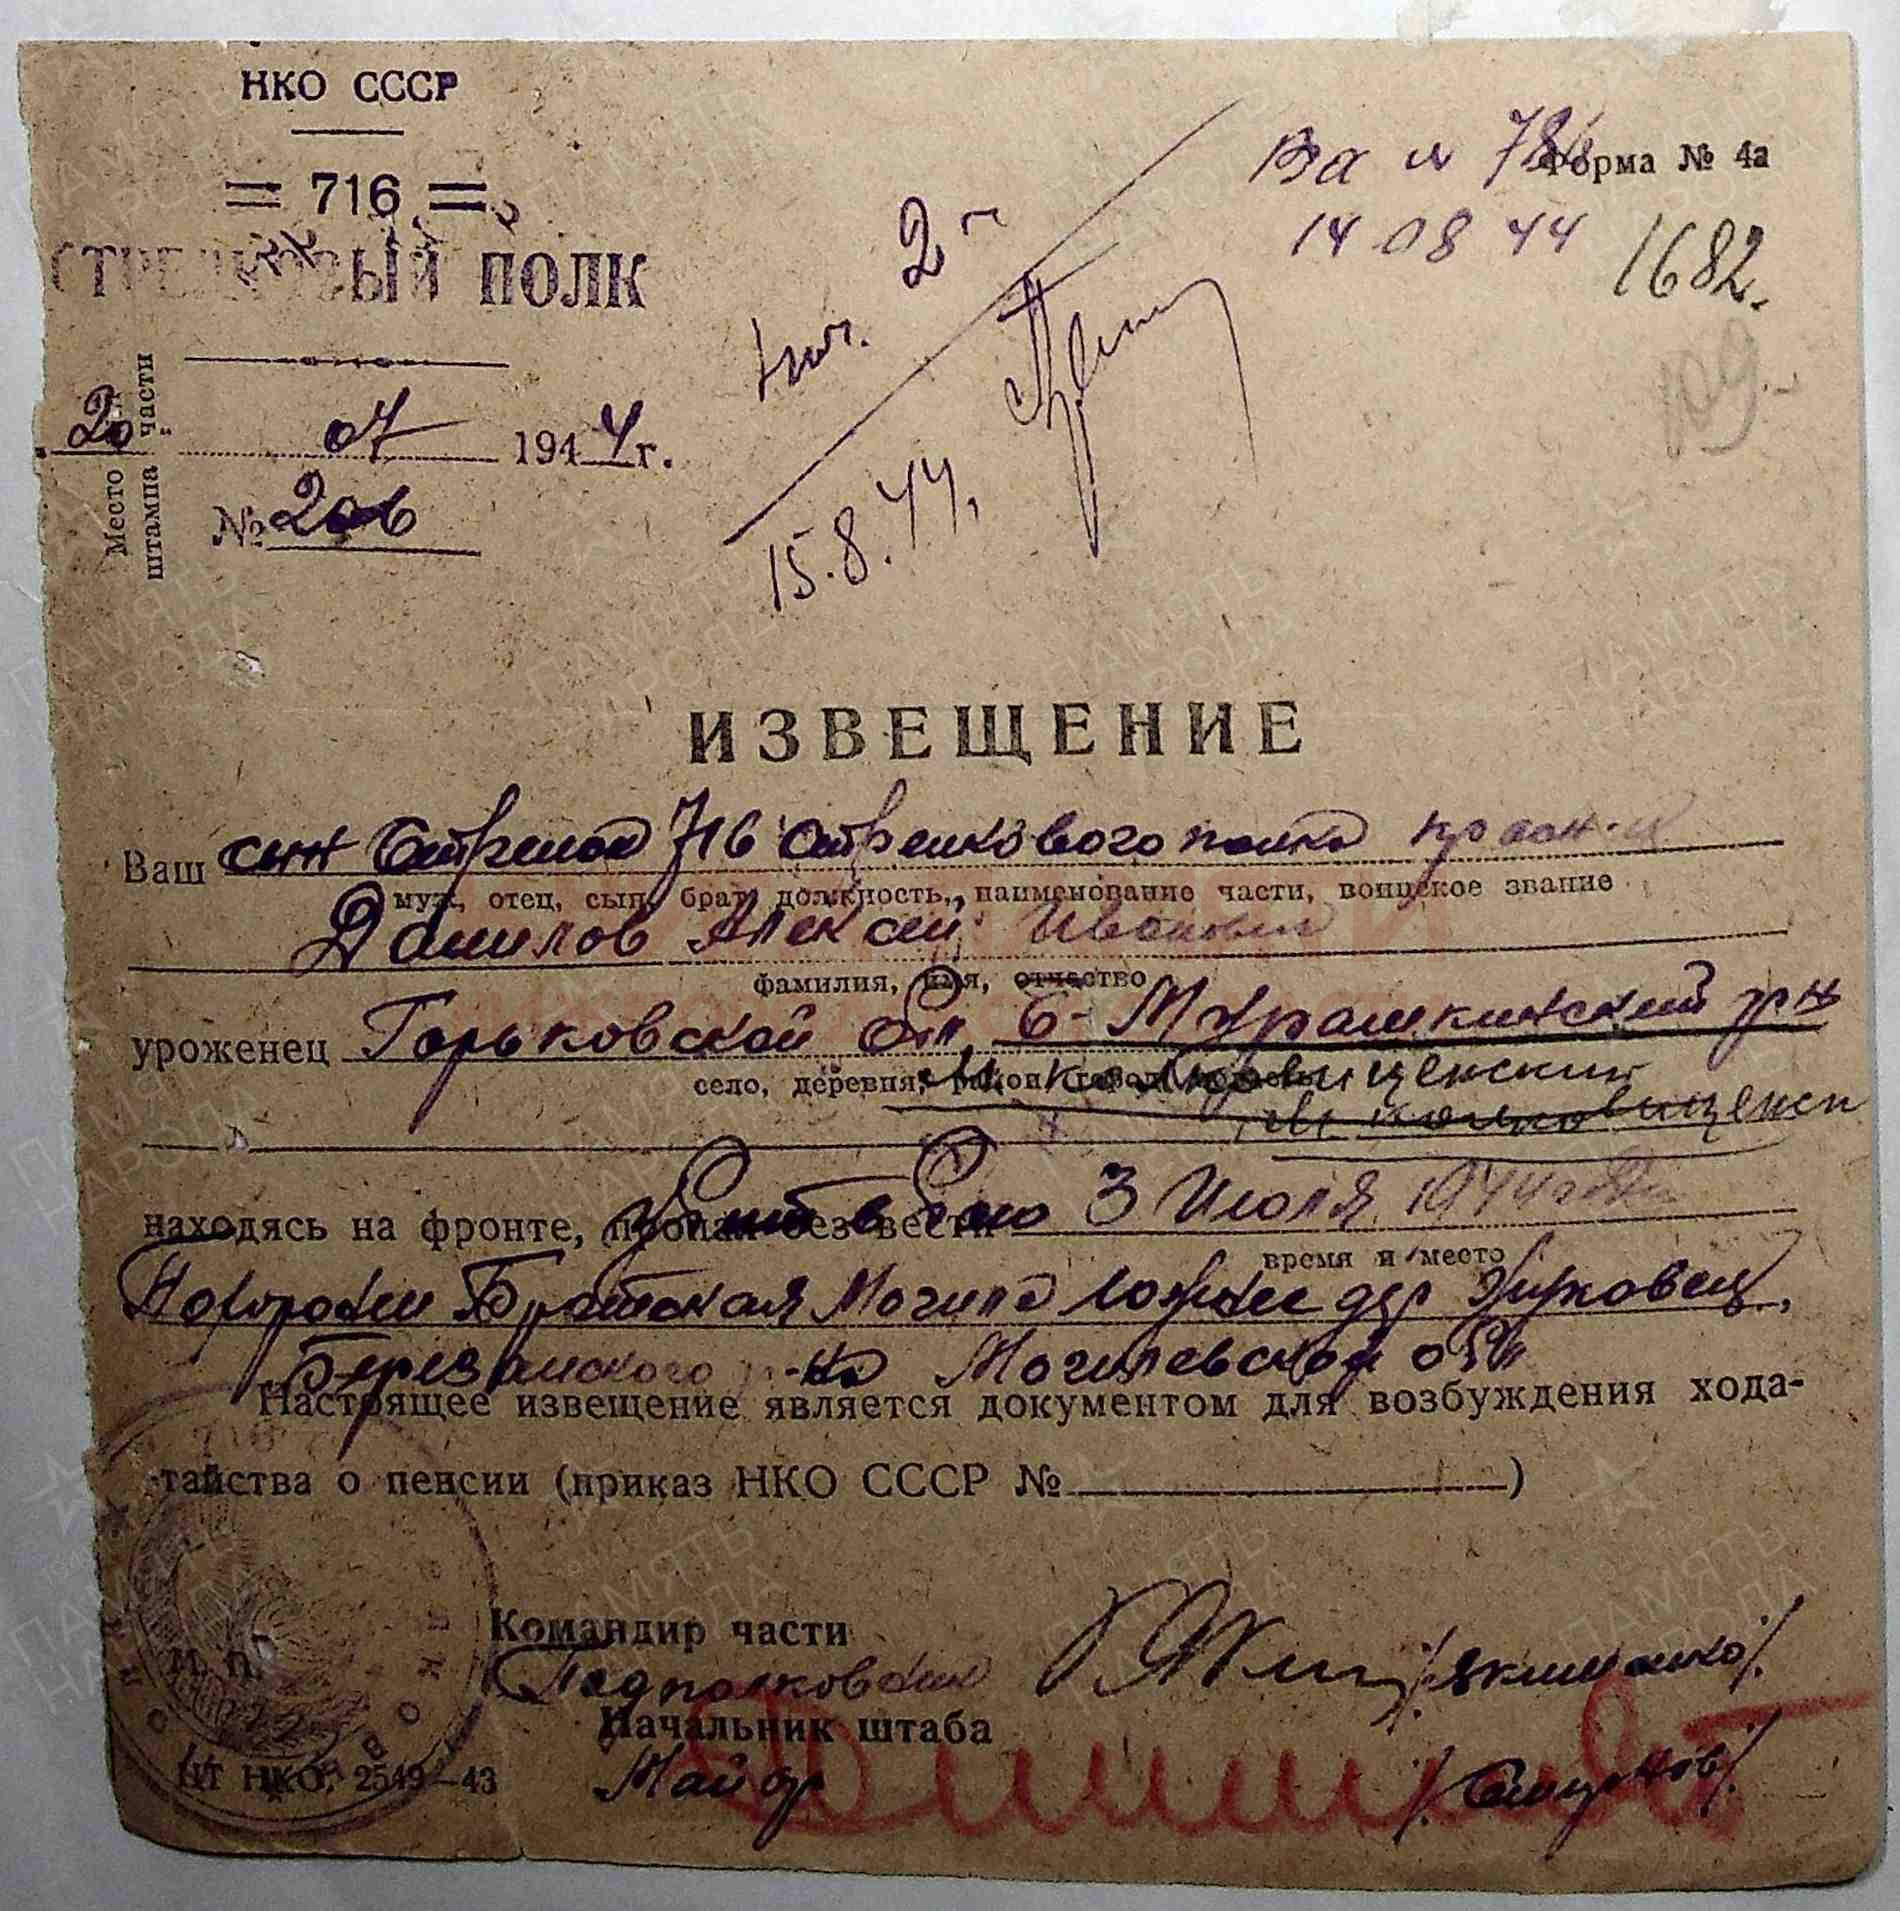 НКО СССР
= 716 =
СТРЕЛКОВЫЙ ПОЛК
Вх № 786
Форма № 4а
14 08 44
1682.
109
2
20 07 1944 г.
№ 206
Место штампа части
15.8.44.
ИЗВЕЩЕНИЕ
Ваш сын Стрелок 716 стрелкового полка красн-ц
муж, отец, сын, брат, должность, наименование части, воинское звание
Данилов Алексей Иванович
фамилия, имя, отчество
уроженец Горьковской обл, Б-Мурашкинский р-н
село, деревня, район
находясь на фронте, пропал без вести Убит в бою 3 Июля 1944 года
время и место
Похоронен Братская Могила южнее дер Жуковец,
Березинского р-на Могилевской обл
Настоящее извещение является документом для возбуждения хода-
тайства о пенсии (приказ НКО СССР № )
Командир части
Подполковник /Якименко/
м. п.
Начальник штаба
Майор /Смирнов/
ЦТ НКО. 2549—43
ПАМЯТЬ НАРОДА